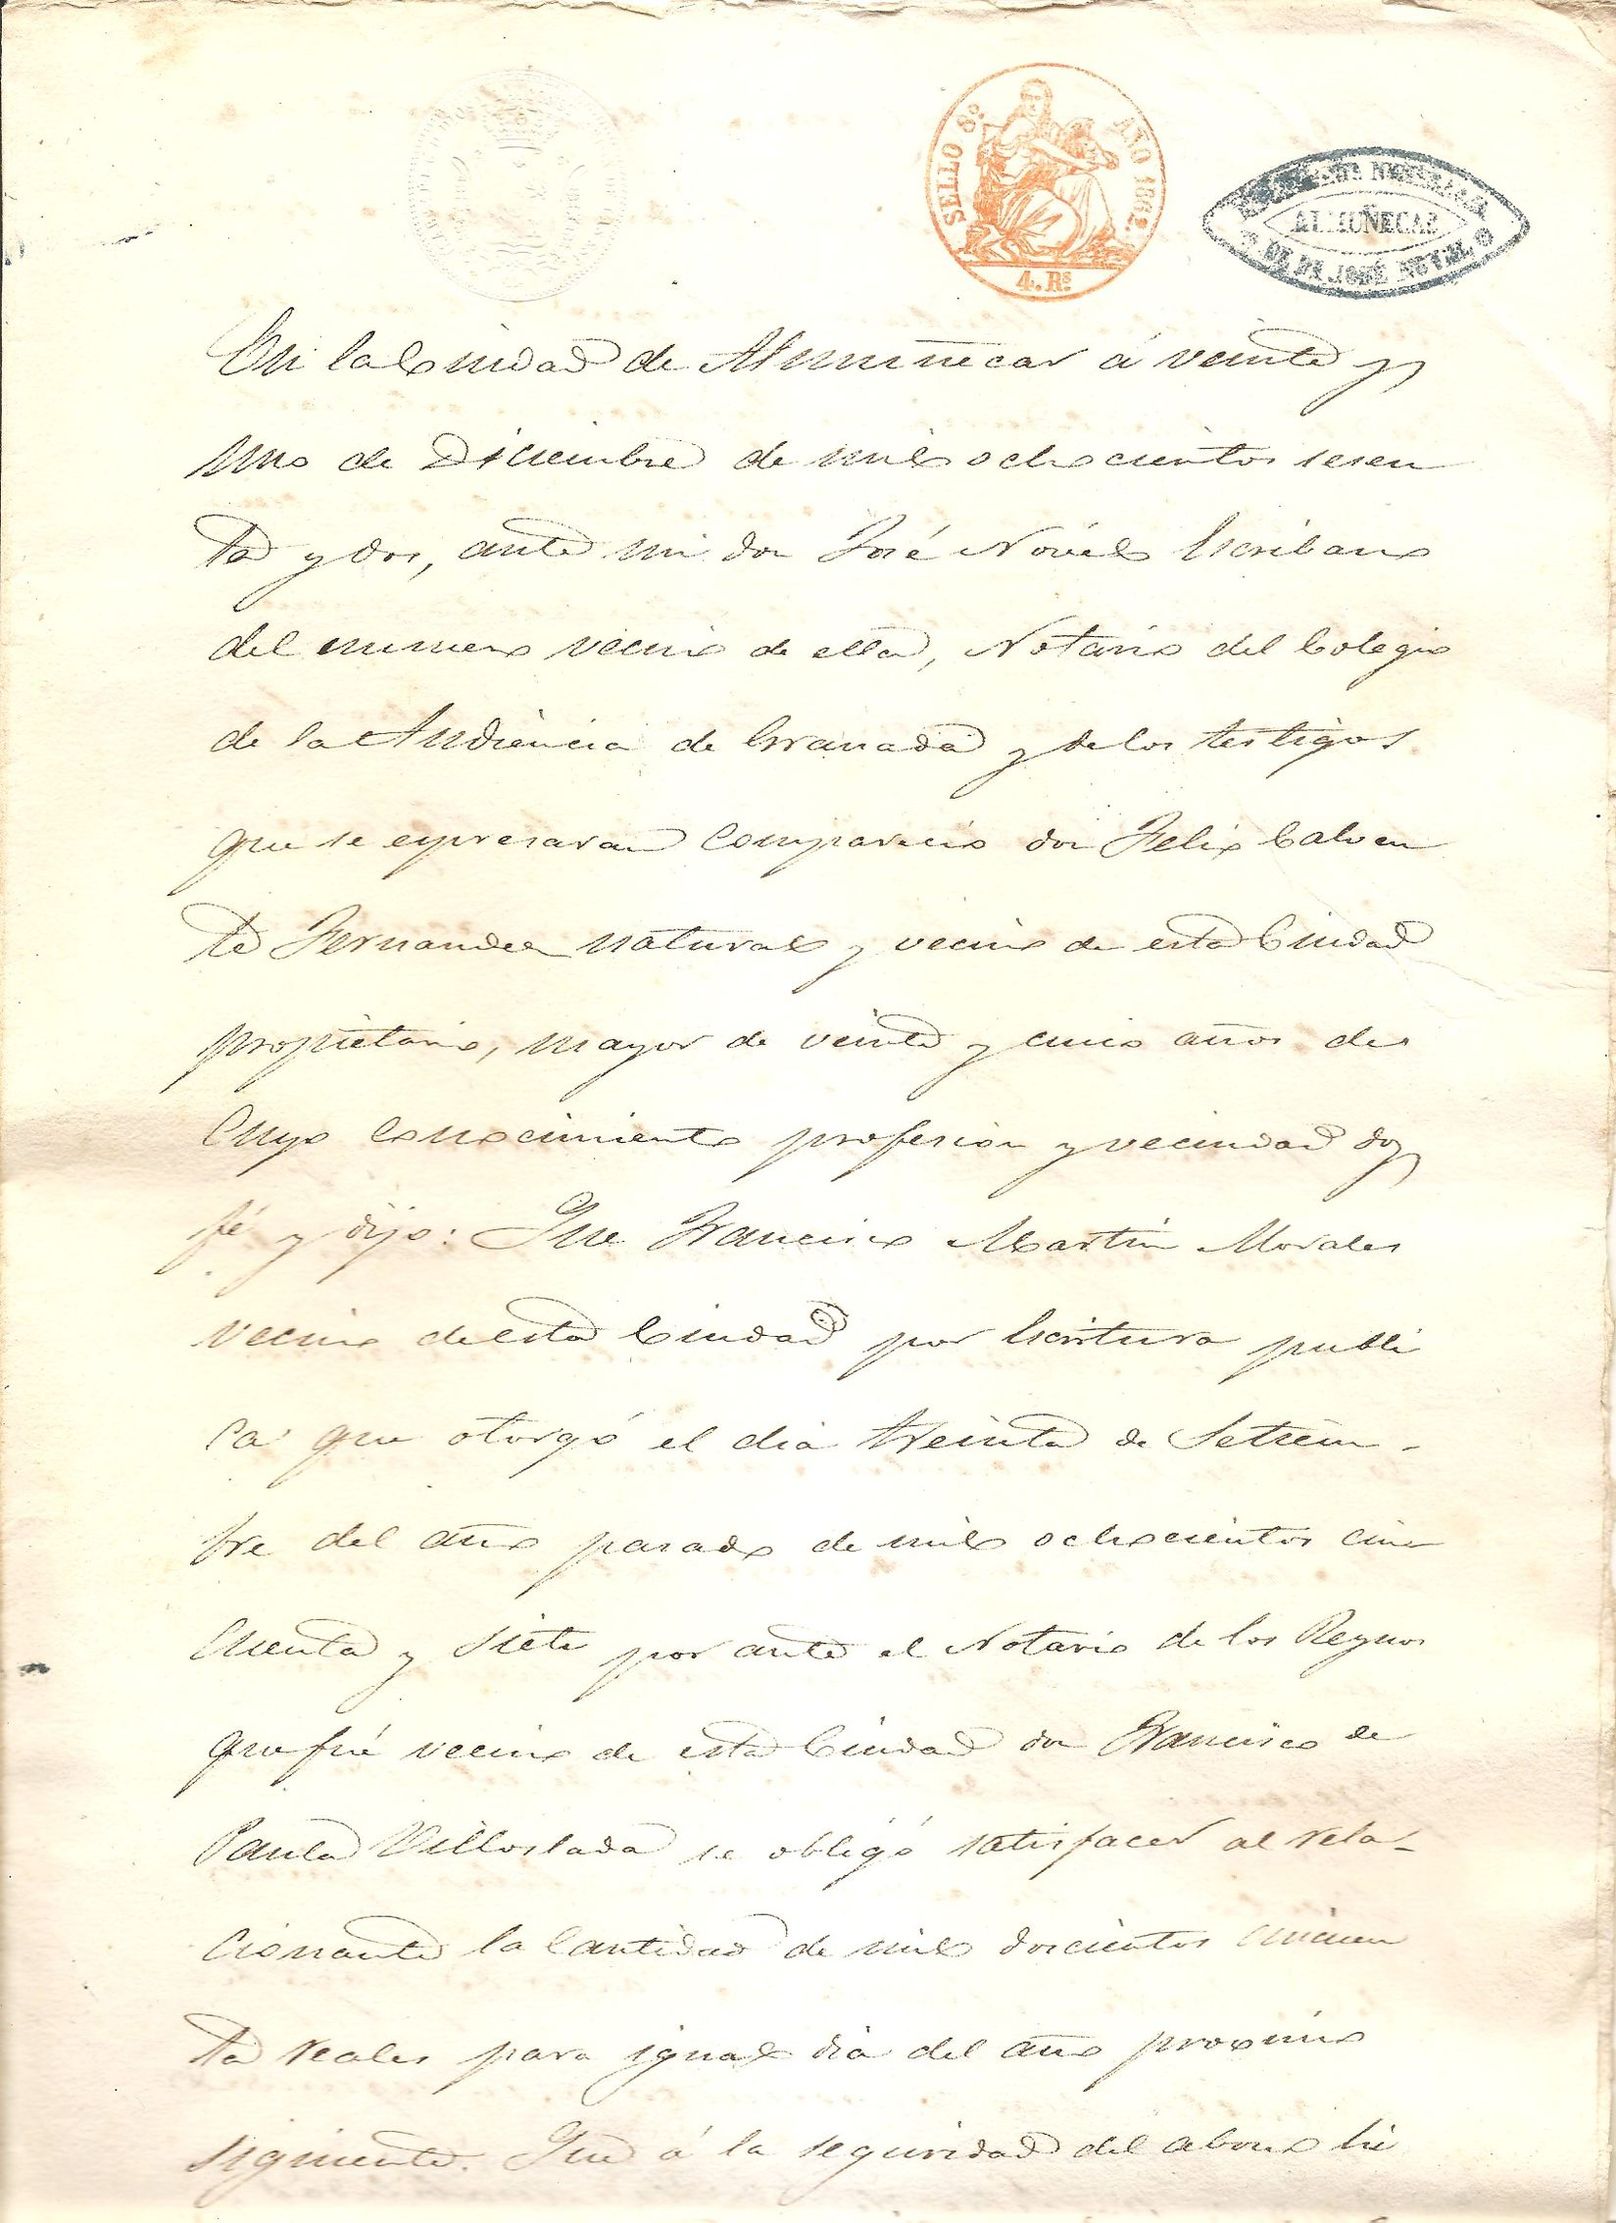 SELLO 8º AÑO 1862.
4. Rs
ALMUÑECAR
DE Dn JOSÉ NOVEL
En la Ciudad de Almuñecar á veinte y
uno de Diciembre de mil ochocientos sesen
ta y dos, ante mi don José Novel Escribano
del numero vecino de ella, Notario del Colegio
de la Audiencia de Granada y de los testigos
que se expresaran comparecio don Felix Calven
te Fernandez natural y vecino de esta Ciudad
propietario, mayor de veinte y cinco años de
cuyo conocimiento profesion y vecindad doy
fé y dijo: Que Francisco Martin Morales
vecino de esta Ciudad por Escritura publi
ca que otorgó el dia treinta de Setiem-
bre del año pasado de mil ochocientos cin
cuenta y siete por ante el Notario de los Reynos
que fué vecino de esta Ciudad don Francisco de
Paula Villoslada se obligó satisfacer al rela-
cionante la Cantidad de mil doscientos cincuen
ta reales para igual dia del año proximo
siguiente. Que á la seguridad del abono hi